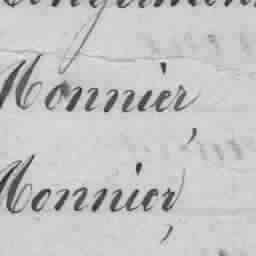 Monnier,
Monnier,